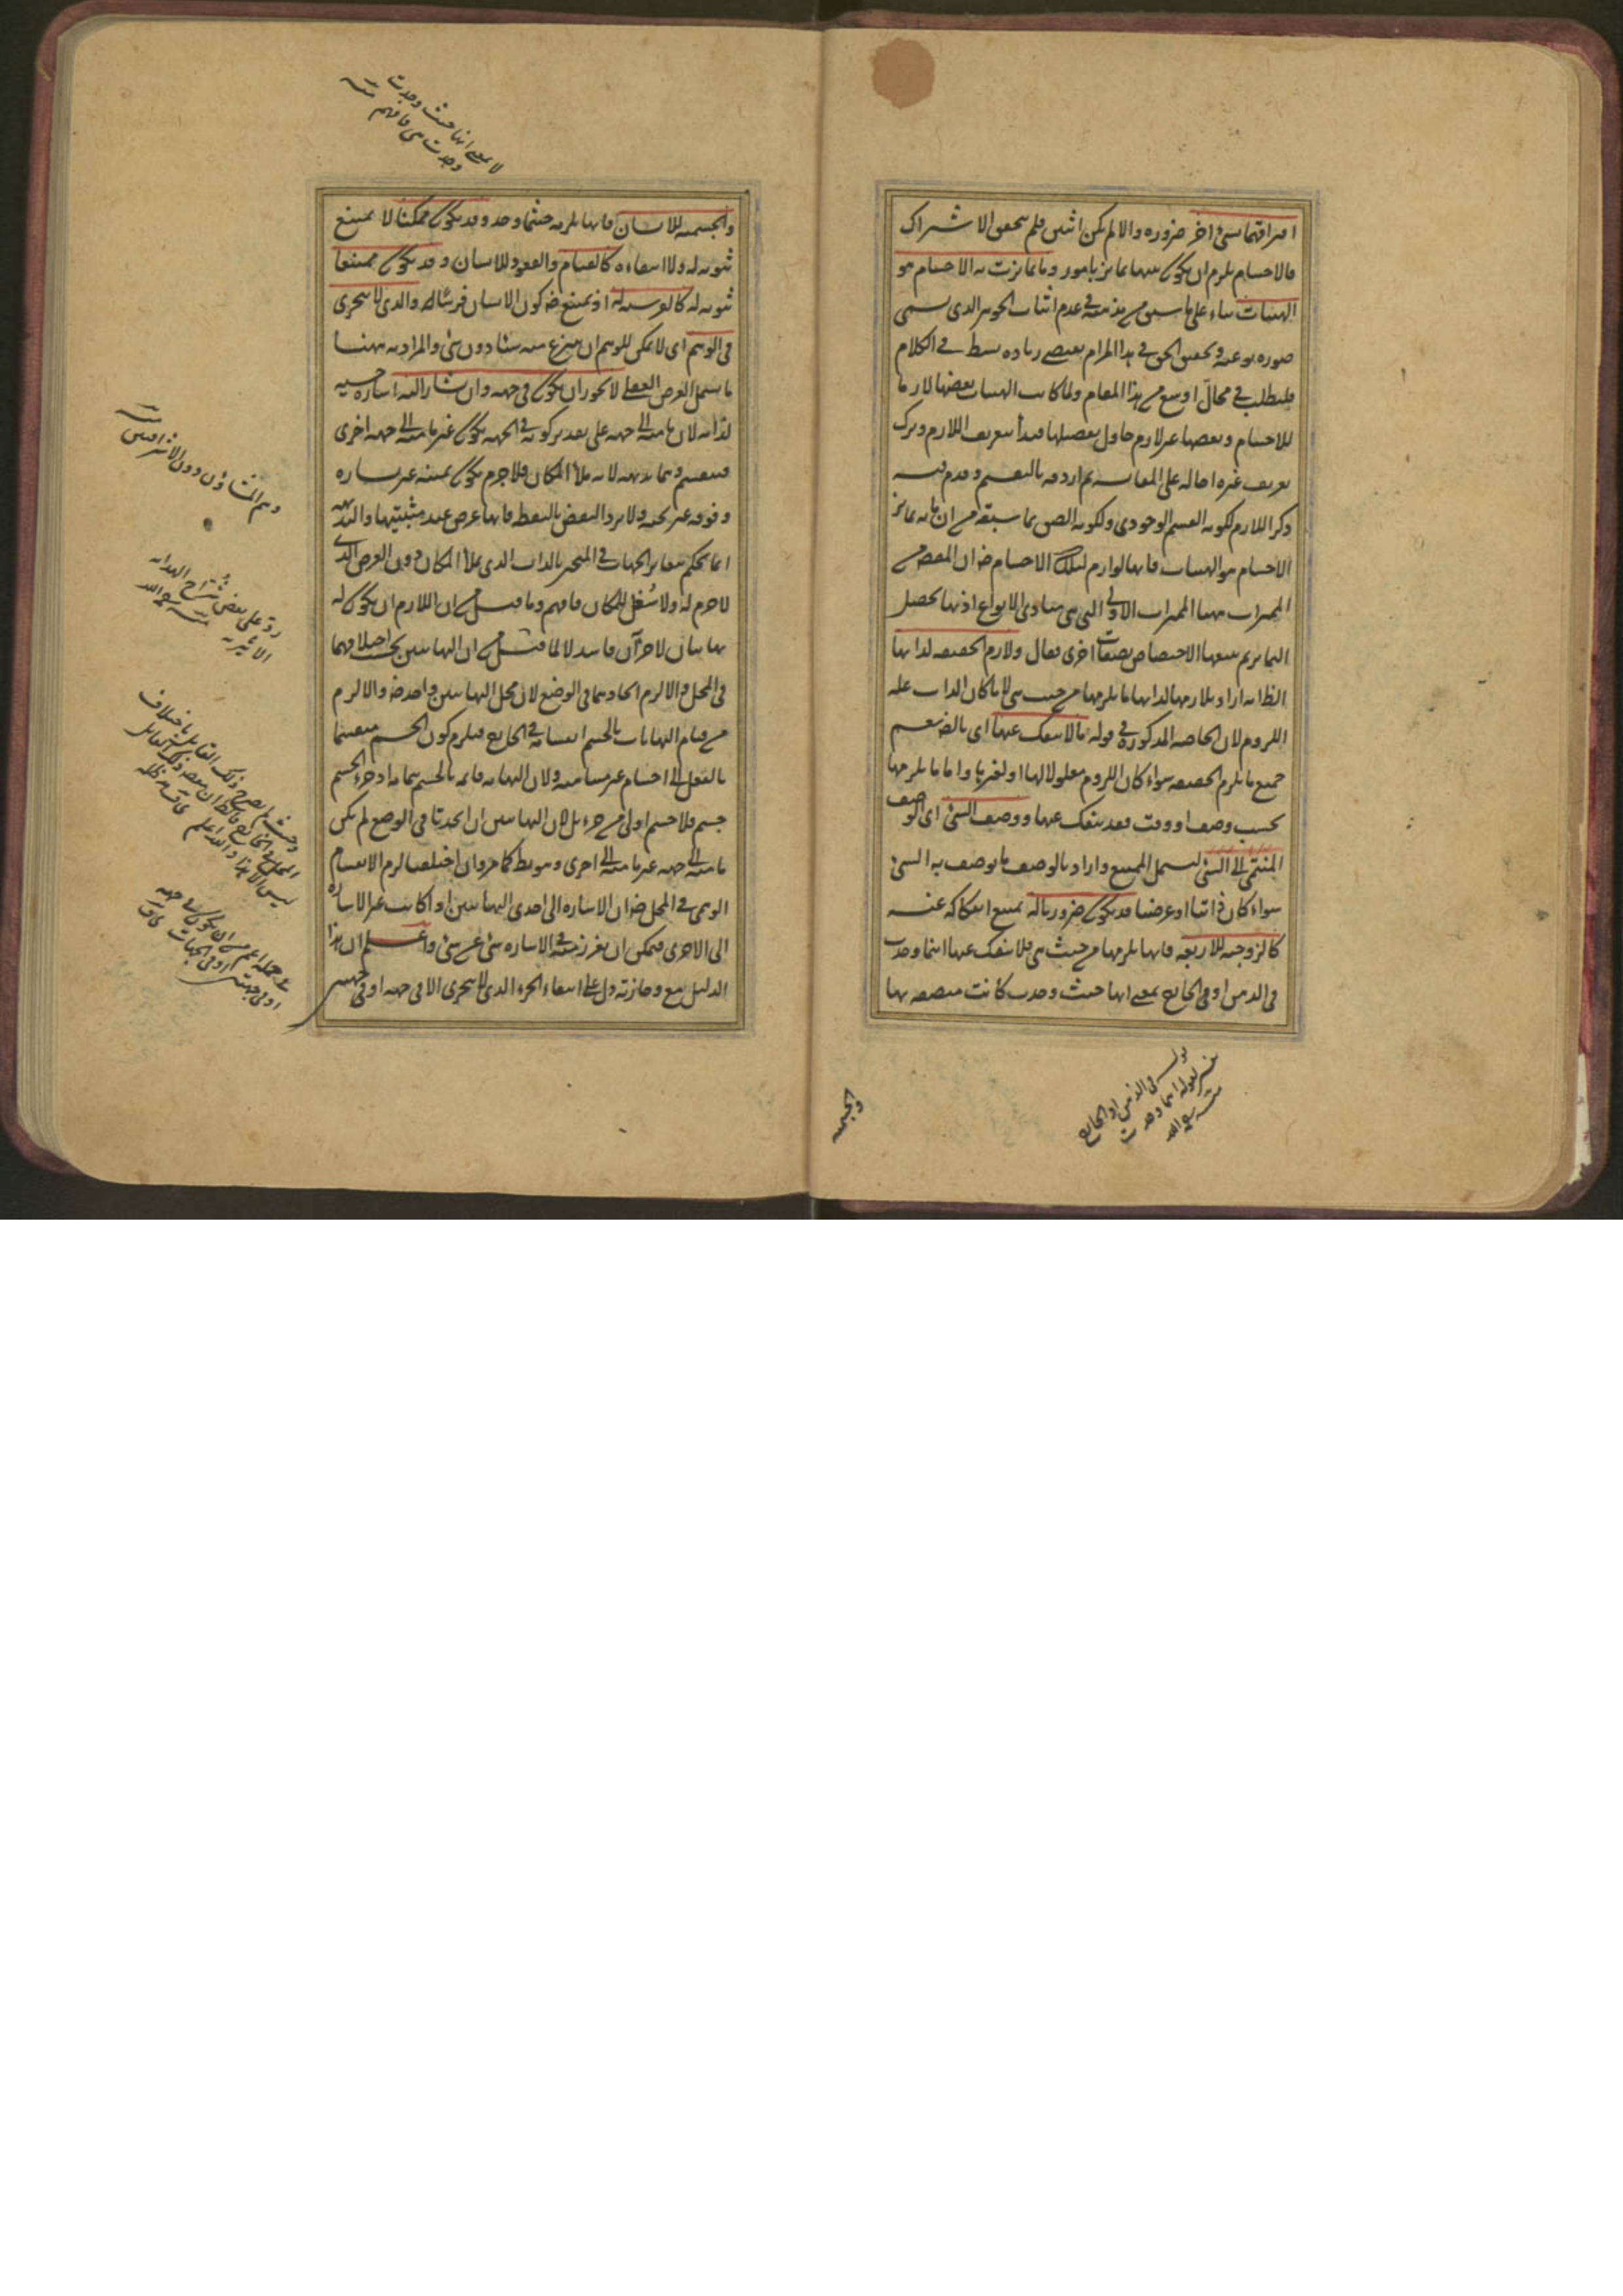 افتراقهما بشئ اخر ضروره والا لم يكن اثنين فلم يتحقق الاشتراك
فالاجسام يلزم ان يكون بينها تمايز بامور وما تمايزت به الاجسام هو
الهيئات بناء على ما سبق من مذهبه في عدم اثبات الجوهر الذى يسمى
صوره نوعيه وتحقيق الحق في هذا المرام يقتضى زياده بسط في الكلام
فليطلب في محال اوسع من هذا المقام ولما كانت الهيئات بعضها لازما
للاجسام وبعضها غير لازم حاول تفصيلها فبدأ بتعريف اللازم وترك
تعريف غيره احاله على المقايسه ثم اردفه بالتقسيم وقدم فيه
ذكر اللازم لكونه القسم الوجودى ولكونه الصق بما سبقه من ان ما به تمايز
الاجسام هو الهيئات فانها لوازم لتلك الاجسام ضر ان المقصود من
المميزات ههنا المميزات الاولى التى هى مبادى الانواع اذ بها يحصل
التمايز ثم يتبعها الاختصاص بصفات اخرى فقال ولازم الحقيقه لذاتها
الظ انه اراد بلازمها لذاتها ما يلزمها من حيث هى لا ما كان الذات عله
اللزوم لان الخاصه المذكوره في قوله ما لا ينفك عنها اى بالضر يعم
جميع ما يلزم الحقيقه سواء كان اللزوم معلولا لها او لغيرها واما ما يلزمها
بحسب وصف او وقت فقد ينفك عنها ووصف الشئ اى الوصف
المنتمى الى الشئ ليشمل الممتنع واراد بالوصف ما يوصف به الشئ
سواء كان ذاتيا او عرضيا قد يكون ضروريا له يمتنع انفكاكه عنه
كالزوجيه للاربعه فانها يلزمها من حيث هى فلا ينفك عنها اينما وجدت
في الذهن او في الخارج بمعنى انها حيث وجدت كانت متصفه بها
قوله في الذهن او الخارج
تفسير لقوله اينما وجدت
منه رحمه الله
والجسميه
لا بمعنى انها حيث وجدت
وجدت هى فافهم منه
والجسميه للانسان فانها يلزمه حيثما وجد وقد يكون ممكنا لا يمتنع
ثبوته له ولا انتفاءه كالقيام والقعود للانسان وقد يكون ممتنعا
ثبوته له كالفرسيه له اذ يمتنع ضر كون الانسان فرسا له والذى لا يتجزى
في الوهم اى لا يمكن للوهم ان ينتزع منه شيئا دون شئ والمراد به ههنا
ما يشمل الفرض العقلى لا يجوز ان يكون في جهه وان يشار اليه اشاره حسيه
لذاته لان ما منه الى جهه على تقدير كونه في الجهه يكون غير ما منه الى جهه اخرى
فينقسم وهما بديهه لانه ملأ المكان فلا جرم يكون يمينه غير يساره
وفوقه غير تحته ولا يرد النقض بالنقطه فانها عرض عند مثبتيها والبديهه
انما يحكم بتغاير الجهات في المتحيز بالذات الذى ملأ المكان دون العرض الذى
لا جرم له ولا شغل للمكان فافهم وما قيل من ان اللازم ان يكون له
نهايتان لا جزآن فاسد لا لما قيل من ان النهايتين يجب اختلافهما
في المحل والا لزم اتحادهما في الوضع لان محل النهايتين واحد ضر والا لزم
من قيام النهايات بالجسم انقسامه في الخارج فيلزم كون الجسم منقسما
بالفعل الى اجسام غير متناهيه ولان النهايه قائمه بالجسم بتمامه اذ جزء الجسم
جسم فلا جسم اولى من جزء بل لان النهايتين ان اتحدتا في الوضع لم يكن
ما منه الى جهه غير ما منه الى اخرى وهو بط كما مر وان اختلفتا لزم الانقسام
الوهمى في المحل ضر ان الاشاره الى احدى النهايتين اذا كانت غير الاشاره
الى الاخرى فيمكن ان يفرز بتعدد الاشاره شئ عن شئ واعلم ان هذا
الدليل مع وجازته دل على انتفاء الجزء الذى لا يتجزى الا في جهه او في جهتين
وهم المشاؤن دون الاشراقيين منه
رد على بعض شراح الهدايه
الاثيريه منه رحمه الله